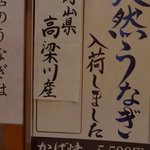 天然うなぎ
入荷しました
山県
高梁川産
うなぎは
かば焼